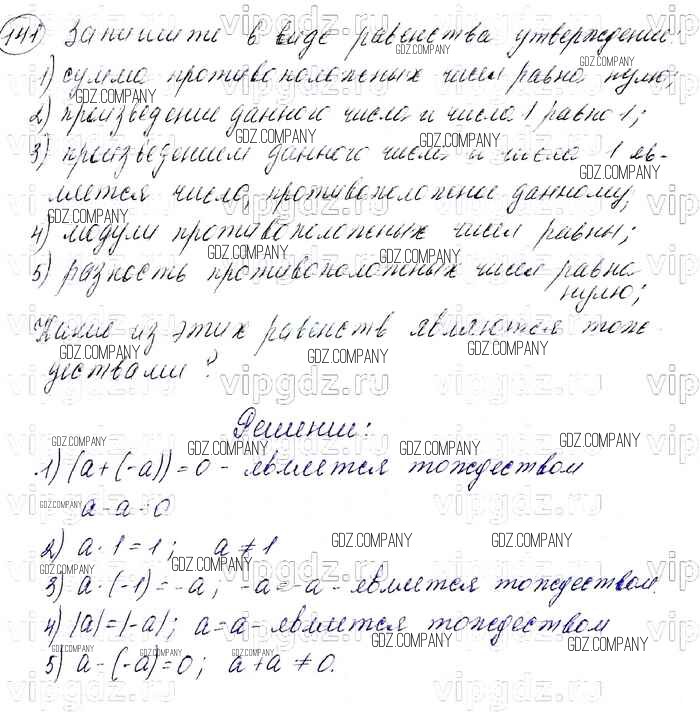 141 Запишите в виде равенства утверждение:
1) сумма противоположных чисел равна нулю;
2) произведение данного числа и числа 1 равно 1;
3) произведением данного числа и числа 1 яв-
ляется число, противоположное данному;
4) модули противоположных чисел равны;
5) разность противоположных чисел равна
нулю;
Какие из этих равенств являются тож-
дествами?
Решение:
1) (a + (-a)) = 0 - является тождеством
a - a = 0
2) a · 1 = 1; a ≠ 1
3) a · (-1) = -a; -a = -a - является тождеством.
4) |a| = |-a|; a = a - является тождеством
5) a - (-a) = 0; a + a ≠ 0.
GDZ.COMPANY
vipgdz.ru